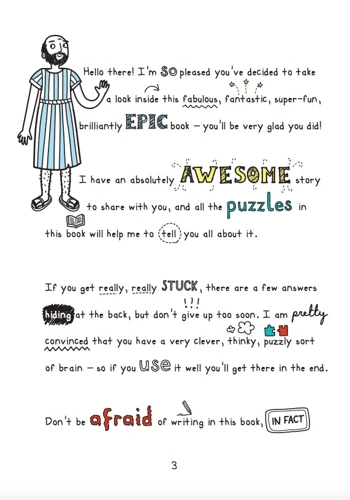 Hello there! I'm SO pleased you've decided to take
a look inside this fabulous, fantastic, super-fun,
brilliantly EPIC book – you'll be very glad you did!
I have an absolutely AWESOME story
to share with you, and all the puzzles in
this book will help me to tell you all about it.
If you get really, really STUCK, there are a few answers
hiding at the back, but don't give up too soon. I am pretty
convinced that you have a very clever, thinky, puzzly sort
of brain – so if you use it well you'll get there in the end.
Don't be afraid of writing in this book, IN FACT
3